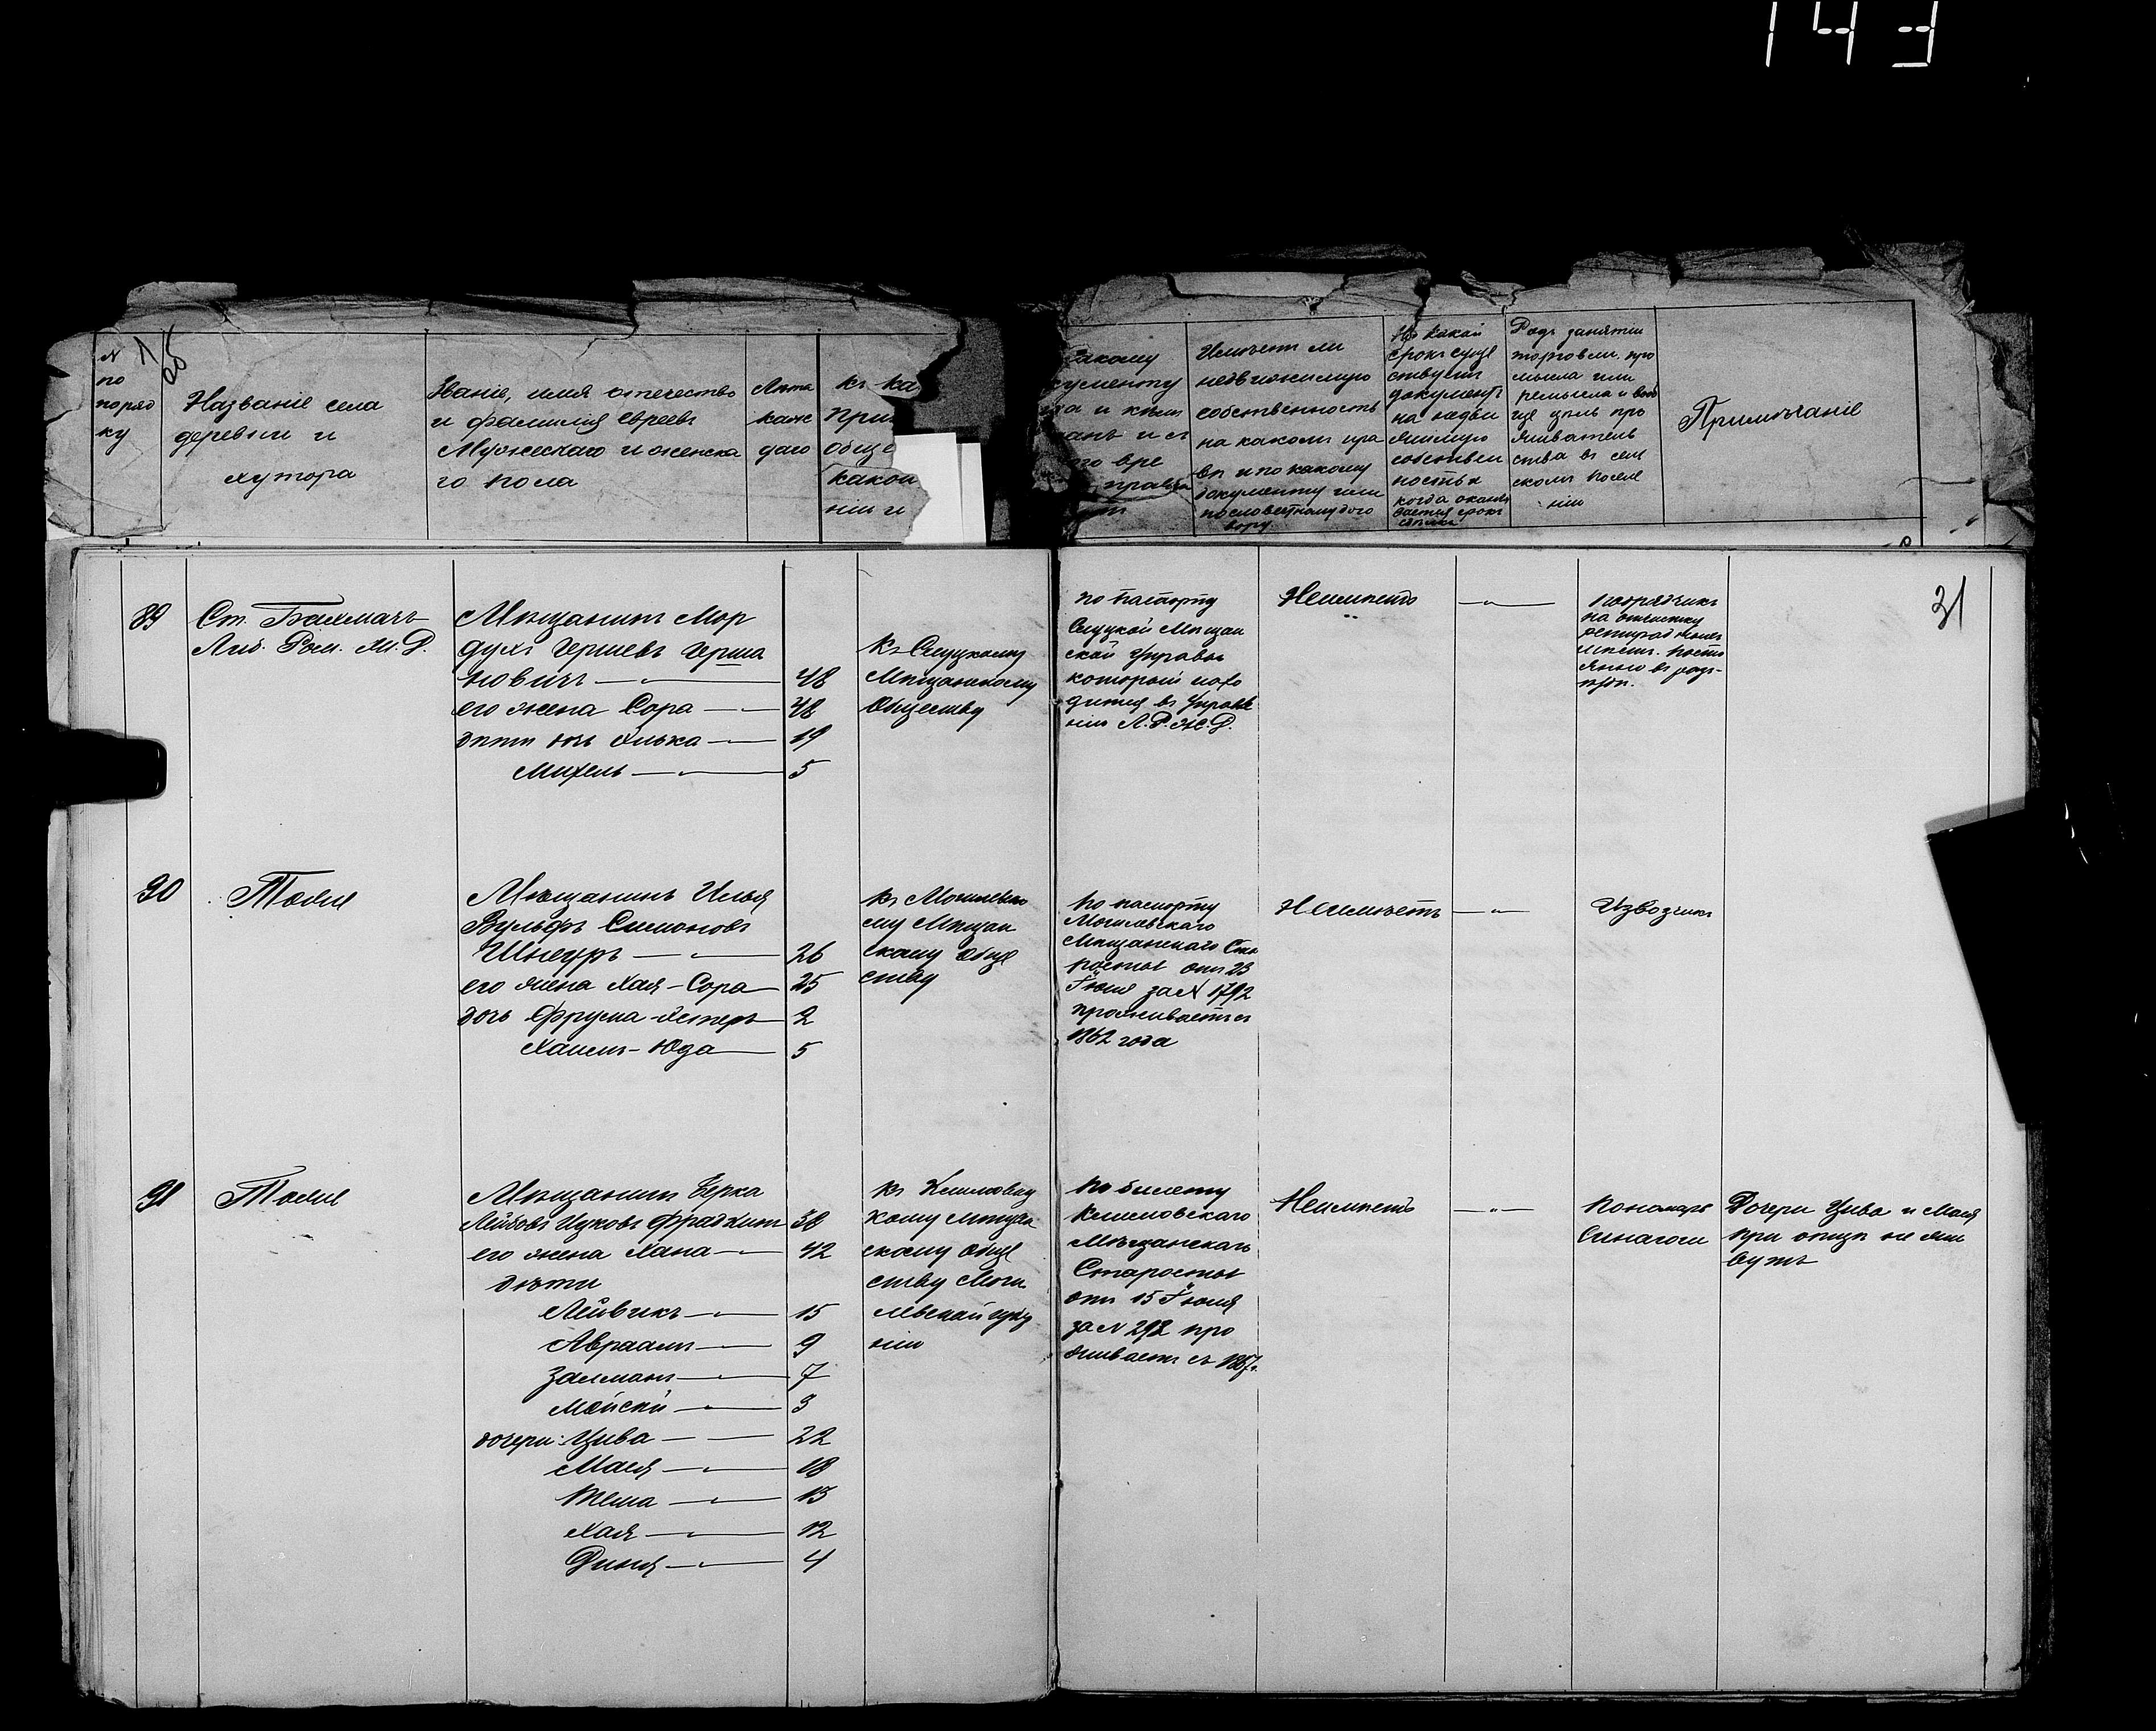 143
N по поряд ку
Названіе села
деревни и
хутора
Званіе, имя отечество
и фамилія Евреевъ
Мужескаго и женска
го пола
Лѣта
каж
даго
къ ка
при
обще
какой
ніи и
какому
кументу
да и кѣм
анъ и съ
ого вре
правл
Имѣетъ ли
недвижимую
собственность
на какомъ пра
вѣ и по какому
документу или
по словесному дого
вору
На какой
срокъ суще
ствуетъ
документъ
на недви
жимую
собствен
ность и
когда оканч
вается срокъ
Родъ занятій
торговли, про
мысла или
ремысла и воо
ще цѣль про
живатель
ства въ сель
скомъ поселе
ніи
Примѣчаніе
31
89
Ст. Бахмачъ
Либ. Ром. Ж. Д.
Мѣщанинъ Мор
духъ Гершевъ Герша
новичъ — " — 48
его жена Сора — " — 48
дѣти дочь Хлька — " — 19
Михель — " — 5
Къ Слуцкому
Мѣщанскому
Обществу
по паспорту
Слуцкой Мѣщан
ской Управы
который нахо
дится въ Управле
ніи Л. Р. Ж. Д.
Неимѣетъ
— " —
Подрядчикъ
на очистку
90
Тоже
Мѣщанинъ Илья
Вульфъ Симоновъ
Шнеуръ — " — 26
его жена Хая-Сора — 25
дочь Фрума-Эстеръ — 2
Хаимъ-Юда — 5
къ Могилевско
му Мѣщан
скому обще
ству
по паспорту
Могилевскаго
Мѣщанскаго Ста
росты отъ 23
Іюня за N 1792
проживаетъ съ
1862 года
Неимѣетъ
— " —
Извозчикъ
91
Тоже
Мѣщанинъ Берка
Лейбовъ Ицковъ Фрадкинъ 38
его жена Хана — " — 42
дѣти
Лейвикъ — " — 15
Авраамъ — " — 9
Залманъ — " — 7
Мойсей — " — 3
дочери: Цива — — 22
Мася — " — 18
Тема — " — 13
Хая — " — 12
Диня — " — 4
къ Климовиц
кому мѣщан
скому обще
ству Моги
левской губер
ніи
по билету
Климовскаго
Мѣщанскаго
Старосты
отъ 15 Іюня
за N 292 про
живаетъ съ 1867 г.
Неимѣетъ
— " —
Пономарь
Синагоги
Дочери Цива и Мася
при отцѣ не жи
вутъ